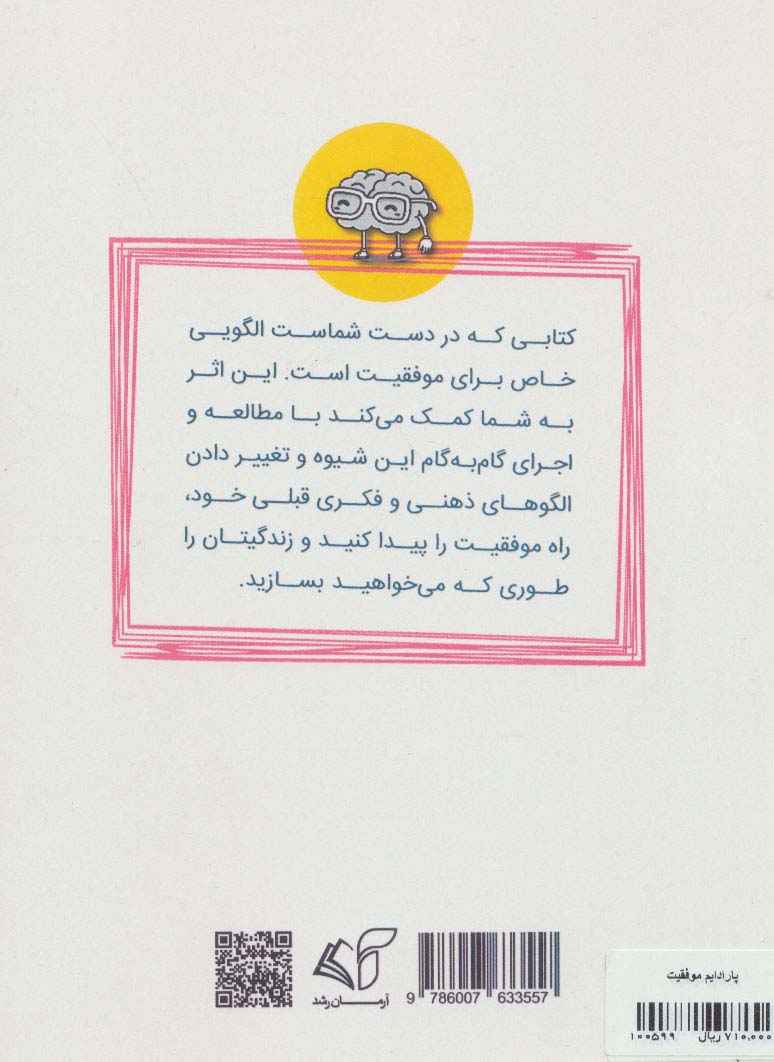 کتابی که در دست شماست الگویی
خاص برای موفقیت است. این اثر
به شما کمک می‌کند با مطالعه و
اجرای گام‌به‌گام این شیوه و تغییر دادن
الگوهای ذهنی و فکری قبلی خود،
راه موفقیت را پیدا کنید و زندگیتان را
طوری که می‌خواهید بسازید.
آرمان رشد
9 786007 633557
پارادایم موفقیت
۷۱۰,۰۰۰ ریال ۱۰۰۵۹۹